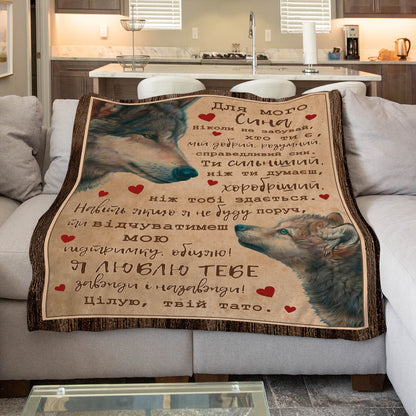 Для мого
Сина
Ніколи не забувай,
хто ти є,
мій добрий, розумний,
справедливий син.
Ти сильніший,
ніж ти думаєш,
хоробріший,
ніж тобі здається.
Навіть якщо я не буду поруч,
ти відчуватимеш
мою
підтримку, обіцяю!
Я люблю тебе
завжди і назавжди!
Цілую, твій тато.